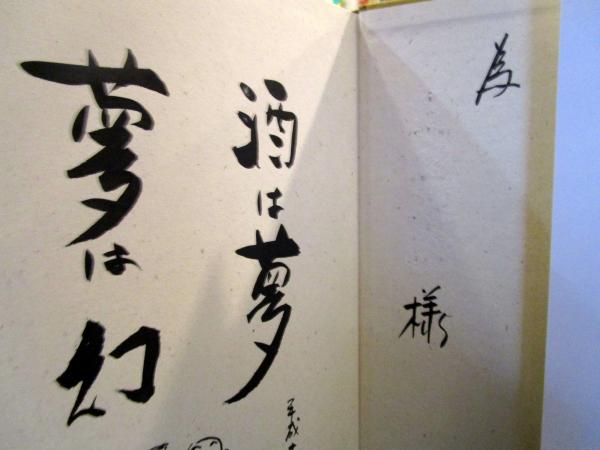 為
様
酒は夢
夢は幻
平成